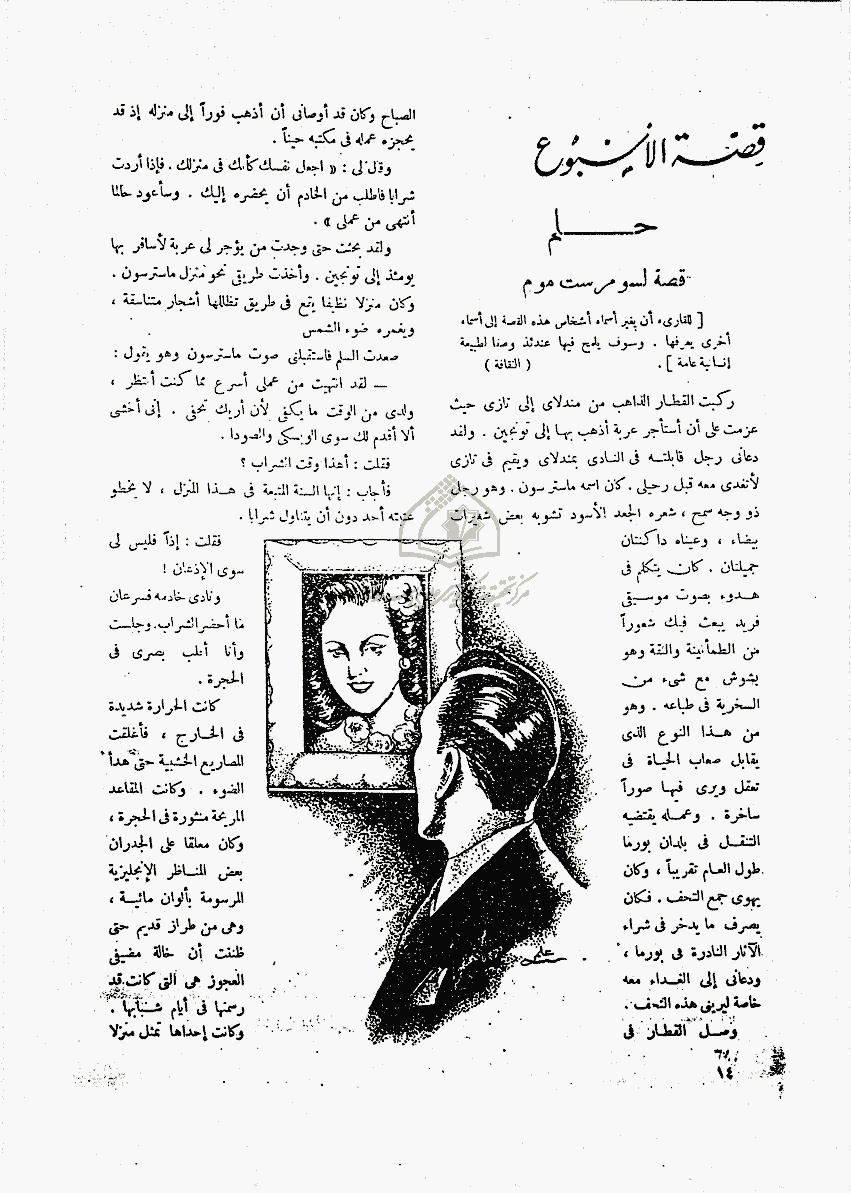 قصة الأسبوع
حلم
قصة لسومرست موم
[ للقارىء أن يغير أسماء أشخاص هذه القصة إلى أسماء
أخرى يعرفها . وسوف يلمح فيها عندئذ وصفا لطبيعة
إنسانية عامة ] . ( الثقافة )
ركبت القطار الذاهب من مندلاى إلى تازى حيث
عزمت على أن أستأجر عربة أذهب بها إلى تونجين . ولقد
دعانى رجل قابلته فى النادى بمندلاى ويقيم فى تازى
لأتغدى معه قبل رحيلى . كان اسمه ماسترسون . وهو رجل
ذو وجه سمح ، شعره الجعد الأسود تشوبه بعض شعيرات
بيضاء ، وعيناه داكنتان
جميلتان . كان يتكلم فى
هدوء بصوت موسيقى
فريد يبعث فيك شعوراً
من الطمأنينة والثقة وهو
يشوش مع شىء من
السخرية فى طباعه . وهو
من هذا النوع الذى
يقابل صعاب الحياة فى
تعقل ويرى فيها صوراً
ساخرة . وعمله يقتضيه
التنقل فى بلدان بورما
طول العام تقريباً ، وكان
يهوى جمع التحف . فكان
يصرف ما يدخر فى شراء
الآثار النادرة فى بورما ،
ودعانى إلى الغداء معه
خاصة ليرينى هذه التحف .
وصل القطار فى
الصباح وكان قد أوصانى أن أذهب فوراً إلى منزله إذ قد
يحجزه عمله فى مكتبه حيناً .
وقال لى : « اجعل نفسك كأنك فى منزلك . فإذا أردت
شرابا فاطلب من الخادم أن يحضره إليك . وسأعود حالما
أنتهى من عملى » .
ولقد بحثت حتى وجدت من يؤجر لى عربة لأسافر بها
يومئذ إلى تونجين . وأخذت طريقى نحو منزل ماسترسون .
وكان منزلا نظيفا يقع فى طريق تظللها أشجار متناسقة ،
ويغمره ضوء الشمس
صعدت السلم فاستقبلنى صوت ماسترسون وهو يقول :
— لقد انتهيت من عملى أسرع مما كنت أنتظر ،
ولدى من الوقت ما يكفى لأن أريك تحفى . إنى أخشى
ألا أقدم لك سوى الويسكى والصودا .
فقلت : أهذا وقت الشراب ؟
فأجاب : إنها السنة المتبعة فى هذا المنزل ، لا يخطو
عتبته أحد دون أن يتناول شرابا .
فقلت : إذاً فليس لى
سوى الإذعان !
ونادى خادمه فسرعان
ما أحضر الشراب. وجلست
وأنا أقلب بصرى فى
الحجرة .
كانت الحرارة شديدة
فى الخارج ، فأغلقت
المصاريع الخشبية حتى هدأ
الضوء . وكانت المقاعد
المريحة منثورة فى الحجرة ،
وكان معلقا على الجدران
بعض المناظر الإنجليزية
المرسومة بألوان مائية ،
وهى من طراز قديم حتى
ظننت أن خالة مضيفى
العجوز هى التى كانت قد
رسمتها فى أيام شبابها .
وكانت إحداها تمثل منزلا
على
١٤